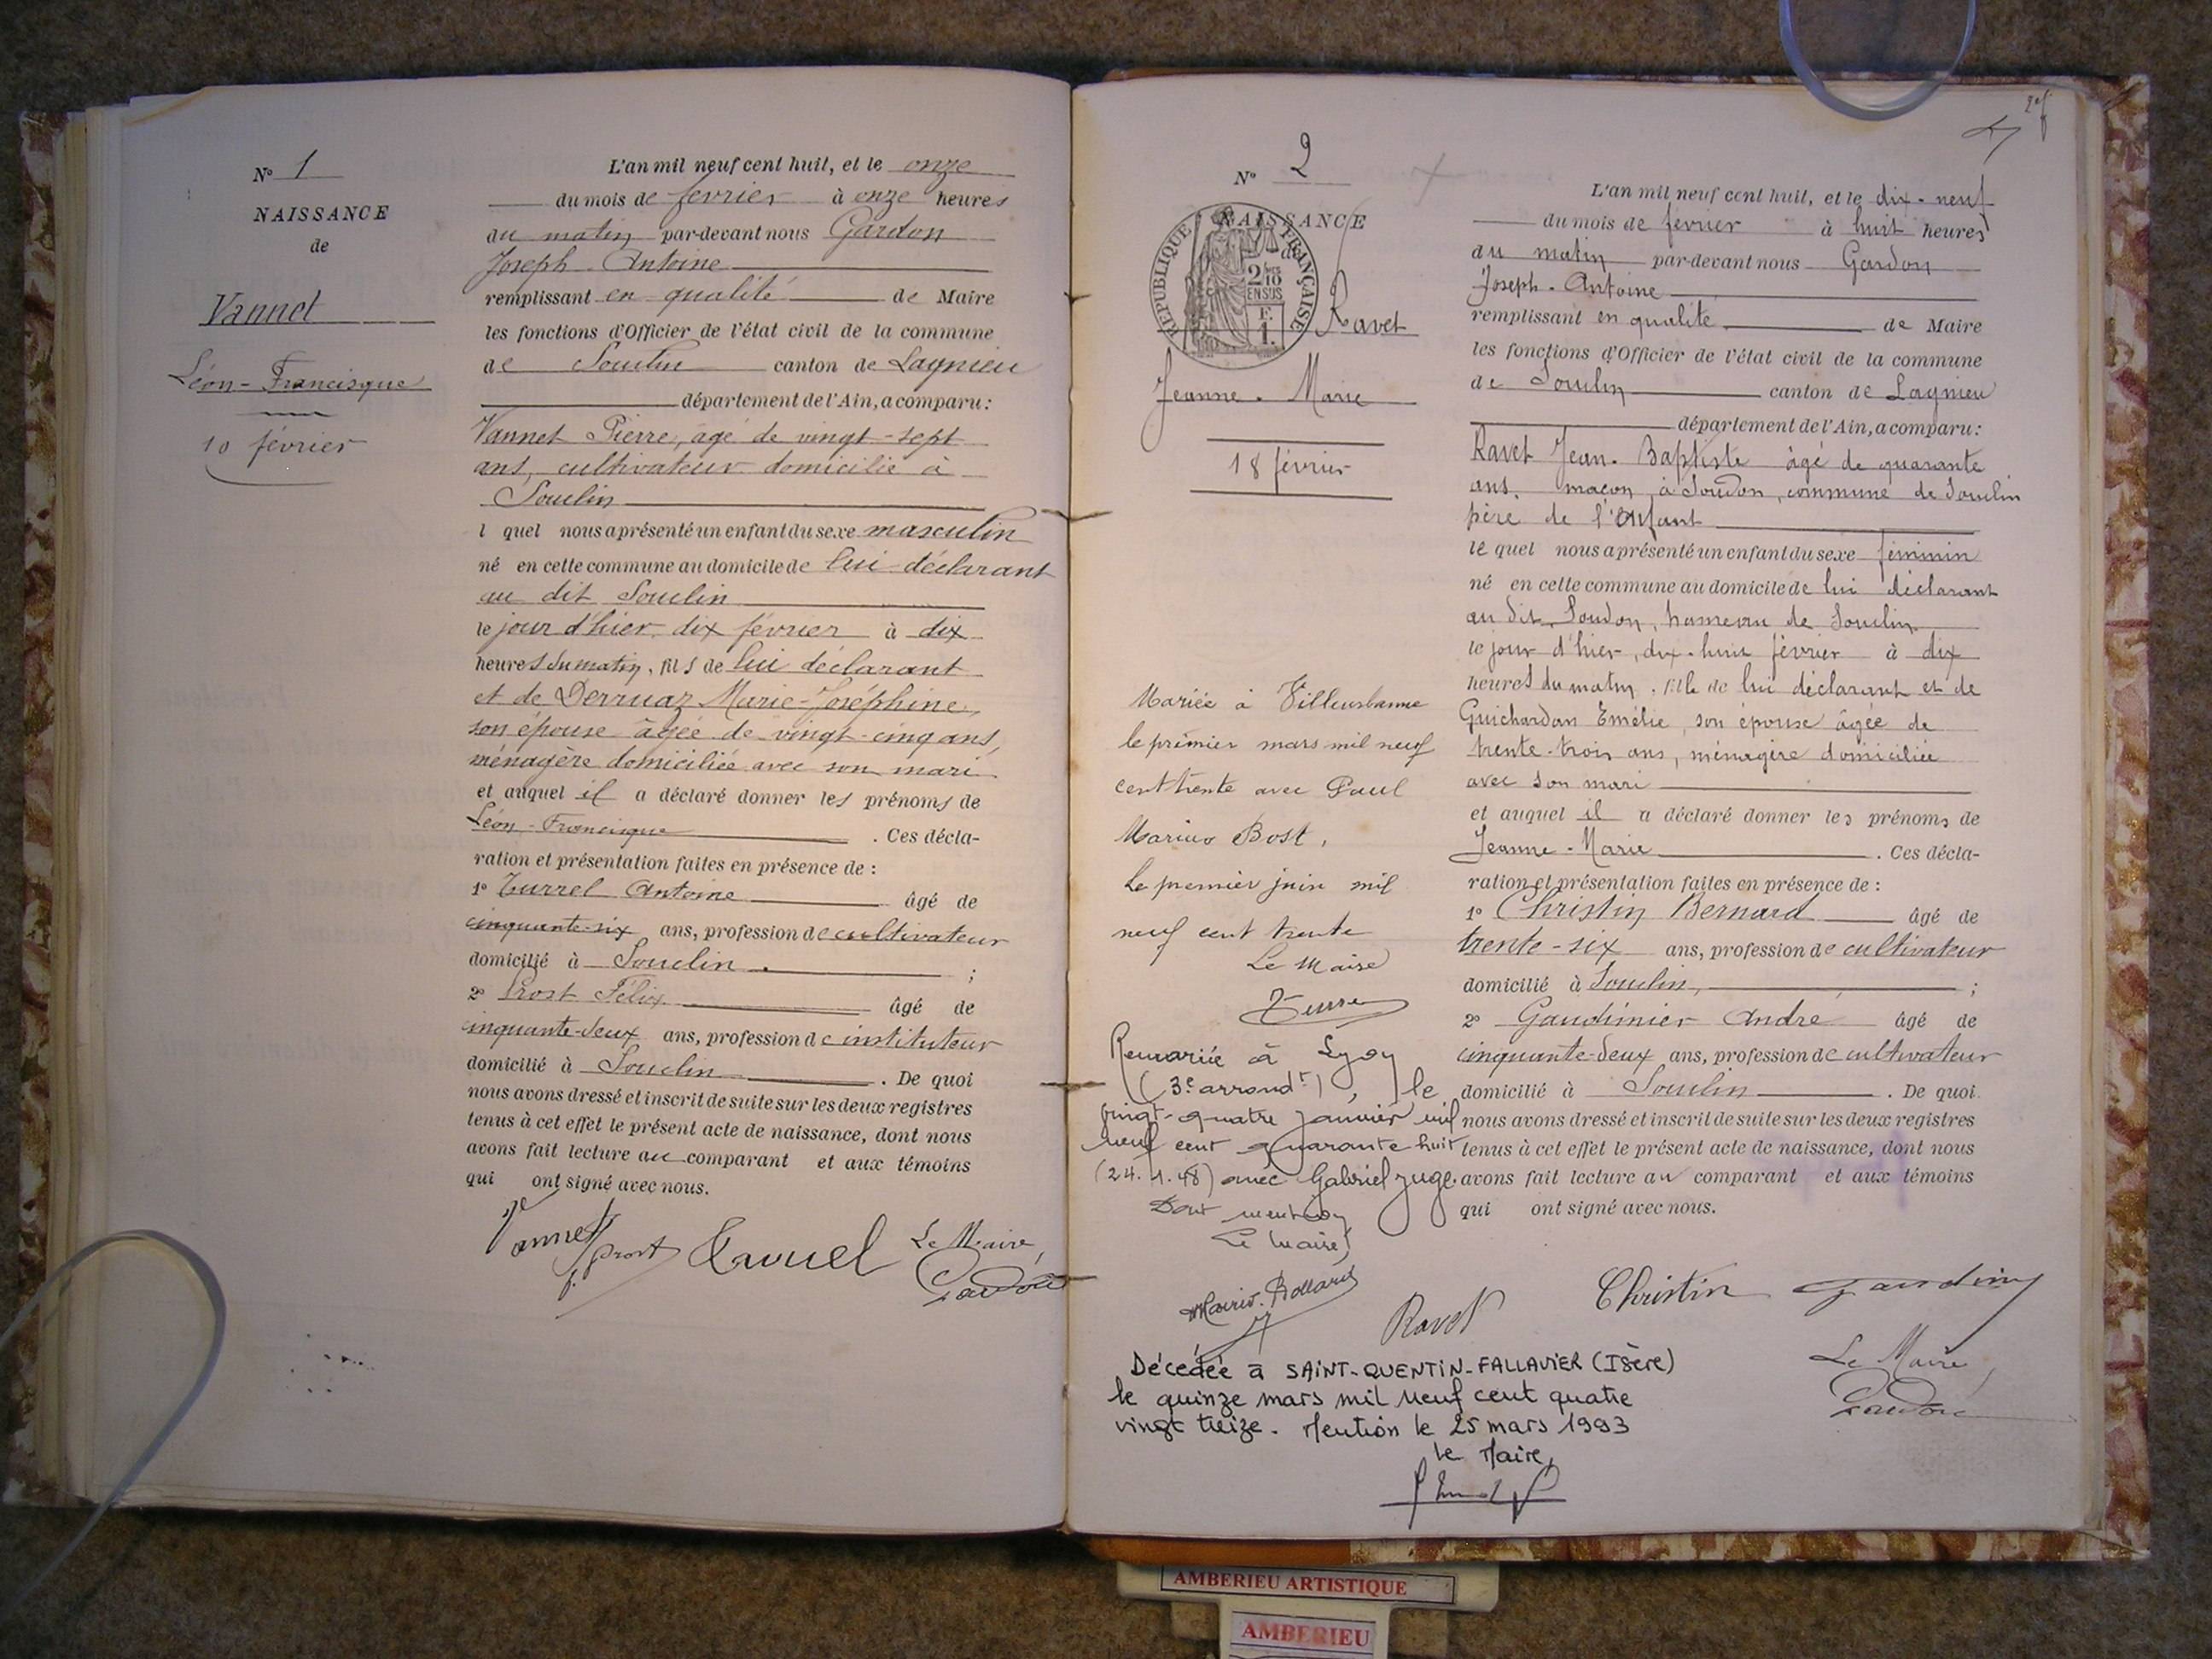 N° 1
NAISSANCE
de
Vannet
Léon-Francisque
10 février
L'an mil neuf cent huit, et le onze
du mois de fevrier à onze heures
du matin par-devant nous Gardon
Joseph-Antoine
remplissant en qualité de Maire
les fonctions d'Officier de l'état civil de la commune
de Souclin canton de Lagnieu
département de l'Ain, a comparu:
Vannet Pierre, âgé de vingt-sept
ans, cultivateur domicilié à
Souclin
l quel nous a présenté un enfant du sexe masculin
né en cette commune au domicile de lui déclarant
au dit Souclin
le jour d'hier, dix février à dix
heures du matin, fils de lui déclarant
et de Derruaz Marie-Joséphine,
son épouse âgée de vingt-cinq ans,
ménagère domiciliée avec son mari
et auquel il a déclaré donner les prénoms de
Léon-Francisque . Ces décla-
ration et présentation faites en présence de :
1° Turrel Antoine âgé de
cinquante-six ans, profession de cultivateur
domicilié à Souclin ;
2° Prost Félix âgé de
cinquante-deux ans, profession de instituteur
domicilié à Souclin . De quoi
nous avons dressé et inscrit de suite sur les deux registres
tenus à cet effet le présent acte de naissance, dont nous
avons fait lecture au comparant et aux témoins
qui ont signé avec nous.
Vannet
f. Prost
Le Maire,
Gardon
N° 2
NAISSANCE
de
RÉPUBLIQUE FRANÇAISE
2/10
EN SUS
F.
1.
Ravet
Jeanne-Marie
18 février
Mariée à Villeurbanne
le premier mars mil neuf
cent trente avec Paul
Marius Bost,
Le premier juin mil
neuf cent trente
Le Maire
Remariée à Lyon
(3e arrondt), le
vingt-quatre janvier mil
neuf cent quarante huit
(24.1.48) avec Gabriel Juge.
Dont mention
Le Maire,
L'an mil neuf cent huit, et le dix-neuf
du mois de fevrier à huit heures
du matin par-devant nous Gardon
Joseph-Antoine
remplissant en qualité de Maire
les fonctions d'Officier de l'état civil de la commune
de Souclin canton de Lagnieu
département de l'Ain, a comparu:
Ravet Jean-Baptiste âgé de quarante
ans, maçon, à Soudon, commune de Souclin
père de l'enfant
le quel nous a présenté un enfant du sexe féminin
né en cette commune au domicile de lui déclarant
au dit Soudon, hameau de Souclin
le jour d'hier, dix-huit février à dix
heures du matin, fille de lui déclarant et de
Guichardon Emélie, son épouse âgée de
trente-trois ans, ménagère domiciliée
avec son mari
et auquel il a déclaré donner les prénoms de
Jeanne-Marie . Ces décla-
ration et présentation faites en présence de :
1° Christin Bernard âgé de
trente-six ans, profession de cultivateur
domicilié à Souclin, ;
2° Gaudimier André âgé de
cinquante-deux ans, profession de cultivateur
domicilié à Souclin . De quoi
nous avons dressé et inscrit de suite sur les deux registres
tenus à cet effet le présent acte de naissance, dont nous
avons fait lecture au comparant et aux témoins
qui ont signé avec nous.
Ravet
Christin
Le Maire,
Gardon
Décédée à SAINT-QUENTIN-FALLAVIER (Isère)
le quinze mars mil neuf cent quatre
vingt treize. Mention le 25 mars 1993
le Maire,
AMBERIEU ARTISTIQUE
AMBERIEU